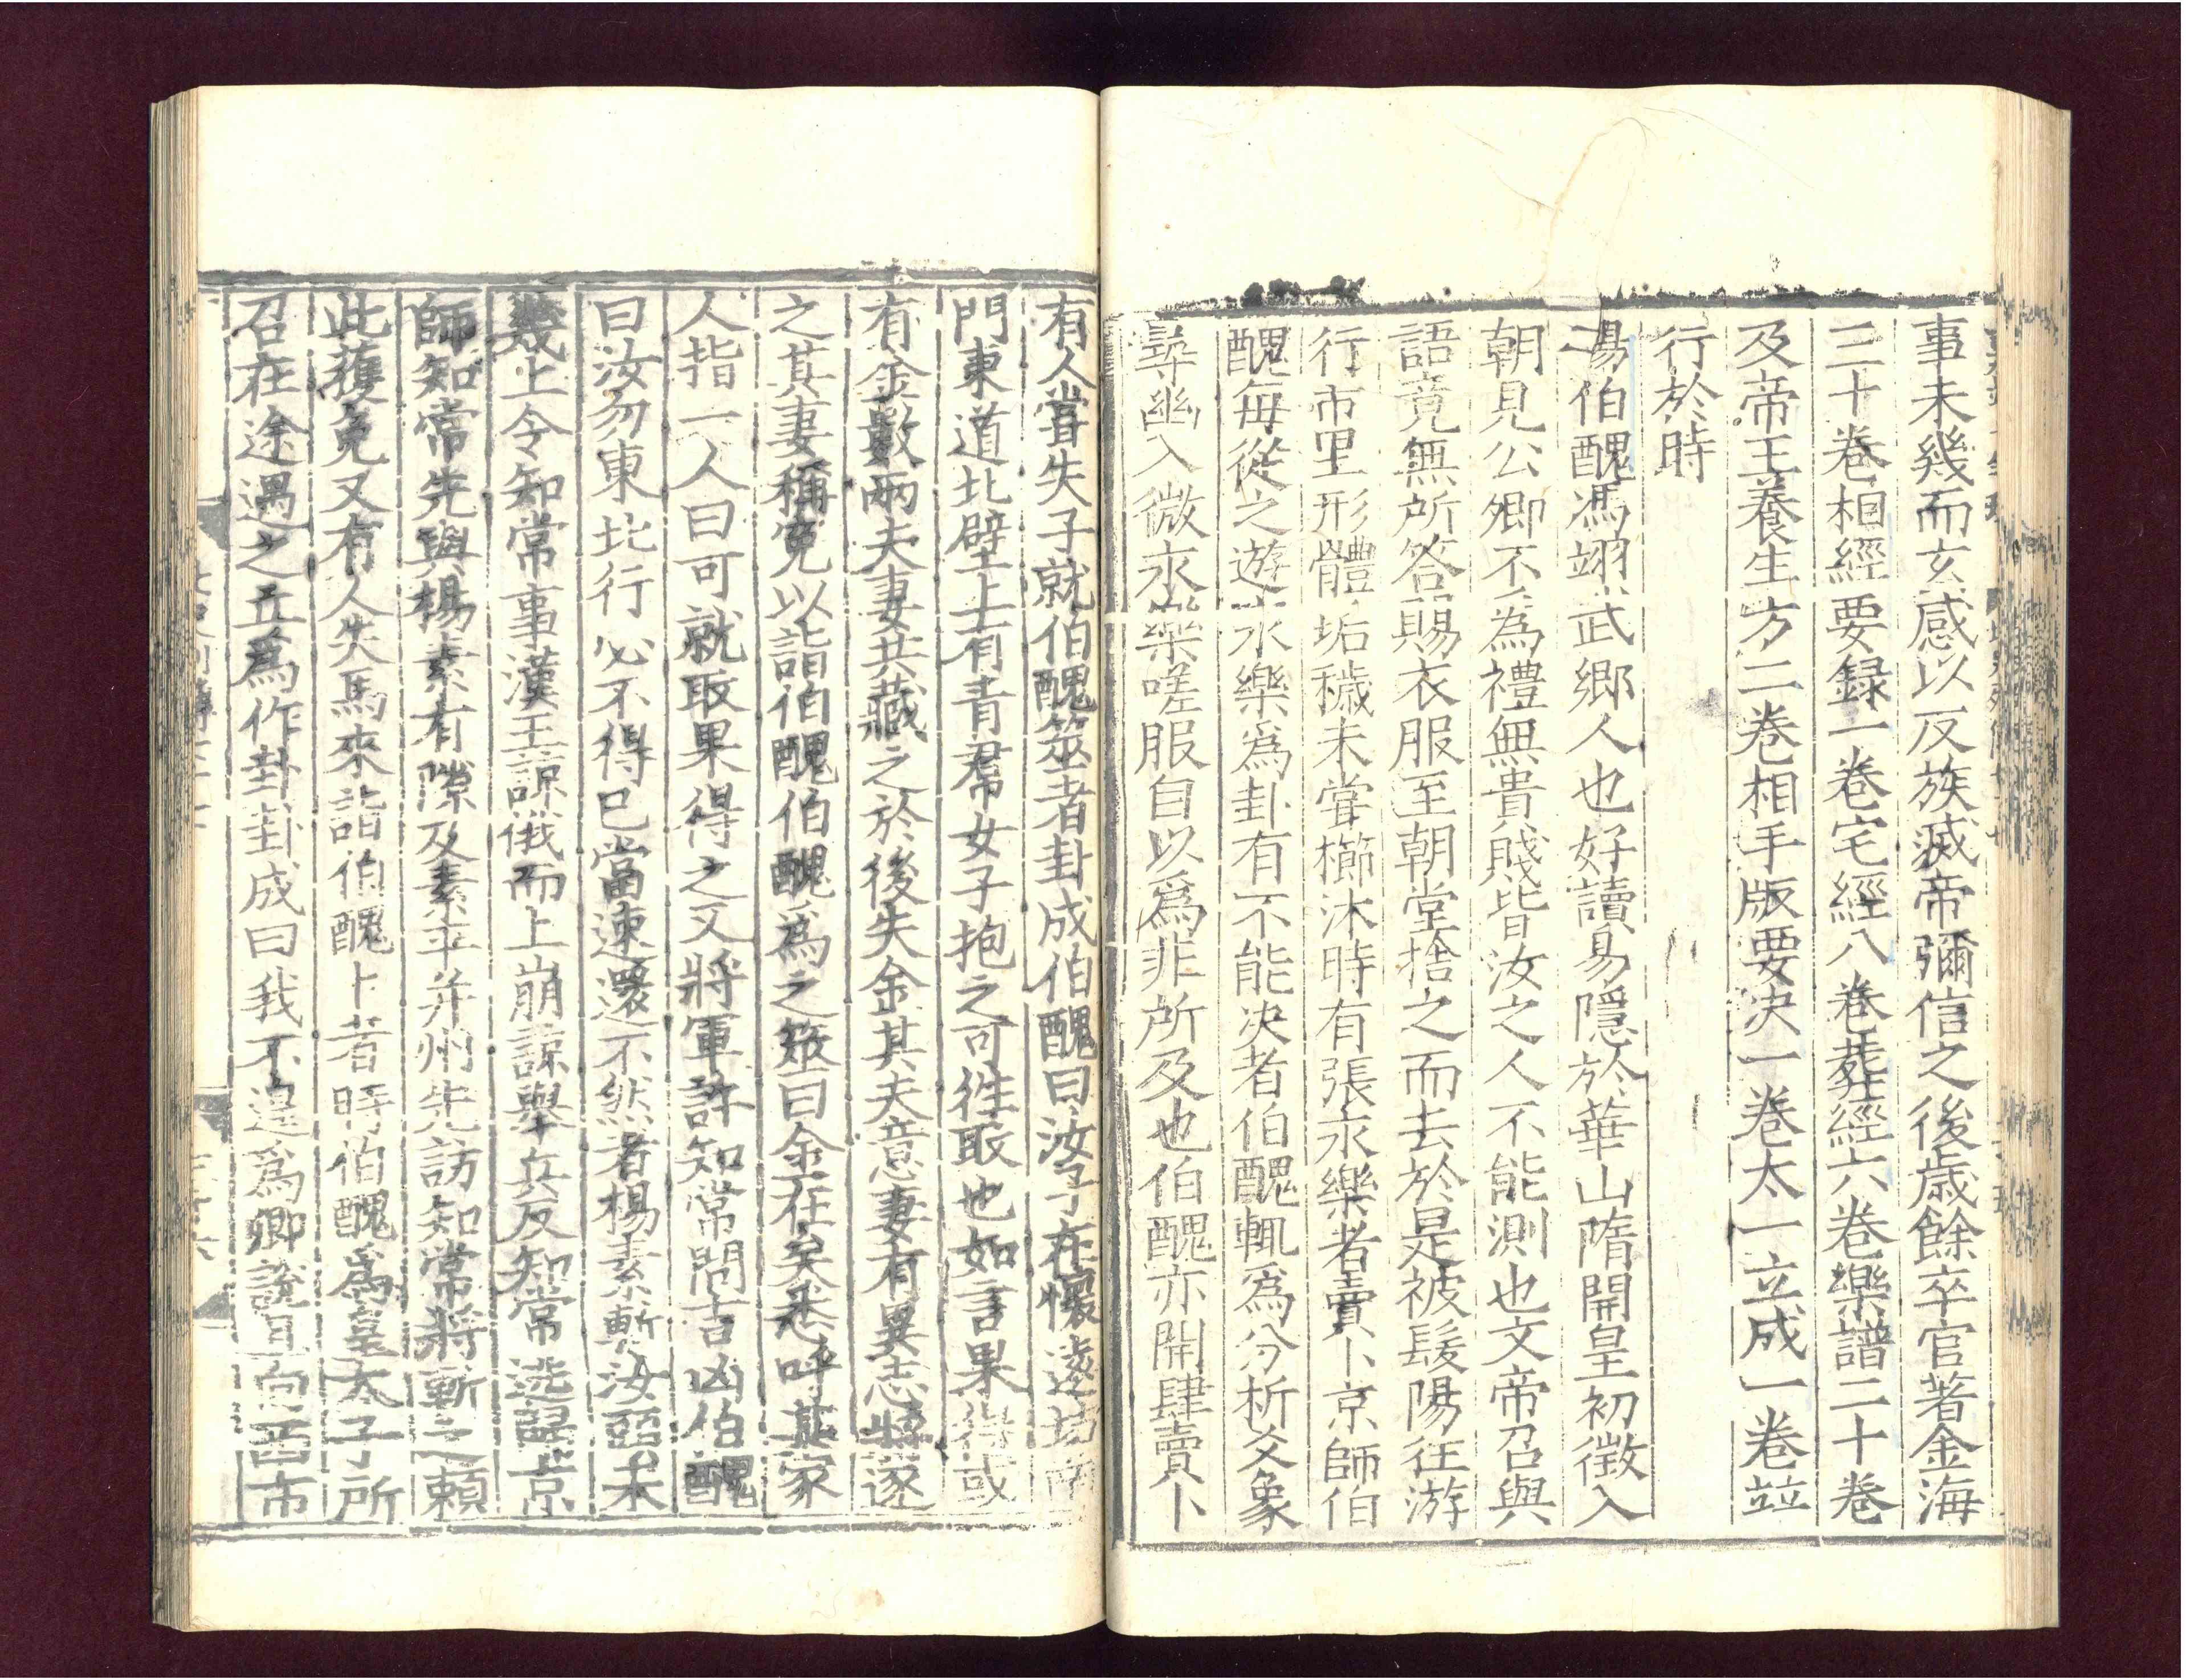 事未幾而玄感以反族滅帝彌信之後歲餘卒官著金海
三十卷相經要録一卷宅經八卷葬經六卷樂譜二十卷
及帝王養生方二卷相手版要决一卷太一立成一卷竝
行於時
楊伯醜馮翊武鄉人也好讀易隱於華山隋開皇初徵入
朝見公卿不為禮無貴賤皆汝之人不能測也文帝召與
語竟無所答賜衣服至朝堂捨之而去於是被髮陽狂游
行市里形體垢穢未嘗櫛沐時有張永樂者賣卜京師伯
醜每從之遊永樂爲卦有不能决者伯醜輒爲分析爻象
尋幽入微永樂嗟服自以爲非所及也伯醜亦開肆賣卜
有人嘗失子就伯醜筮者卦成伯醜曰汝子在懷遠坊南
門東道北壁上有青帬女子抱之可往取也如言果得或
有金數兩夫妻共藏之於後失金其夫意妻有異志將逐
之其妻稱寃以詣伯醜伯醜爲之筮曰金在矣悉呼其家
人指一人曰可就取果得之又將軍許知常問吉凶伯醜
曰汝勿東北行必不得已當速還不然者楊素斬汝頭未
幾上令知常事漢王諒俄而上崩諒舉兵反知常逃歸京
師知常先與楊素有隙及素平并州先訪知常將斬之賴
此獲免又有人失馬來詣伯醜卜者時伯醜爲皇太子所
召在途遇之立爲作卦卦成曰我不遑爲卿說且向西市